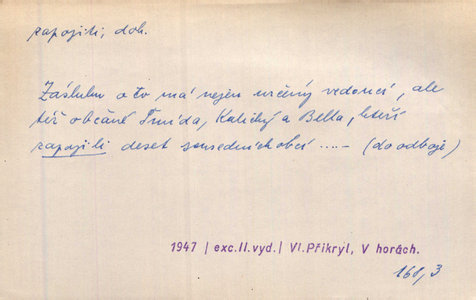 zapojiti, dok.
Zásluhu o to má nejen určený vedoucí, ale
též občané Šmída, Kalický a Bella, kteří
zapojili deset sousedních obcí ....– (do odboje)
1947 | exc.II.vyd. | Vl.Přikryl, V horách.
160,3